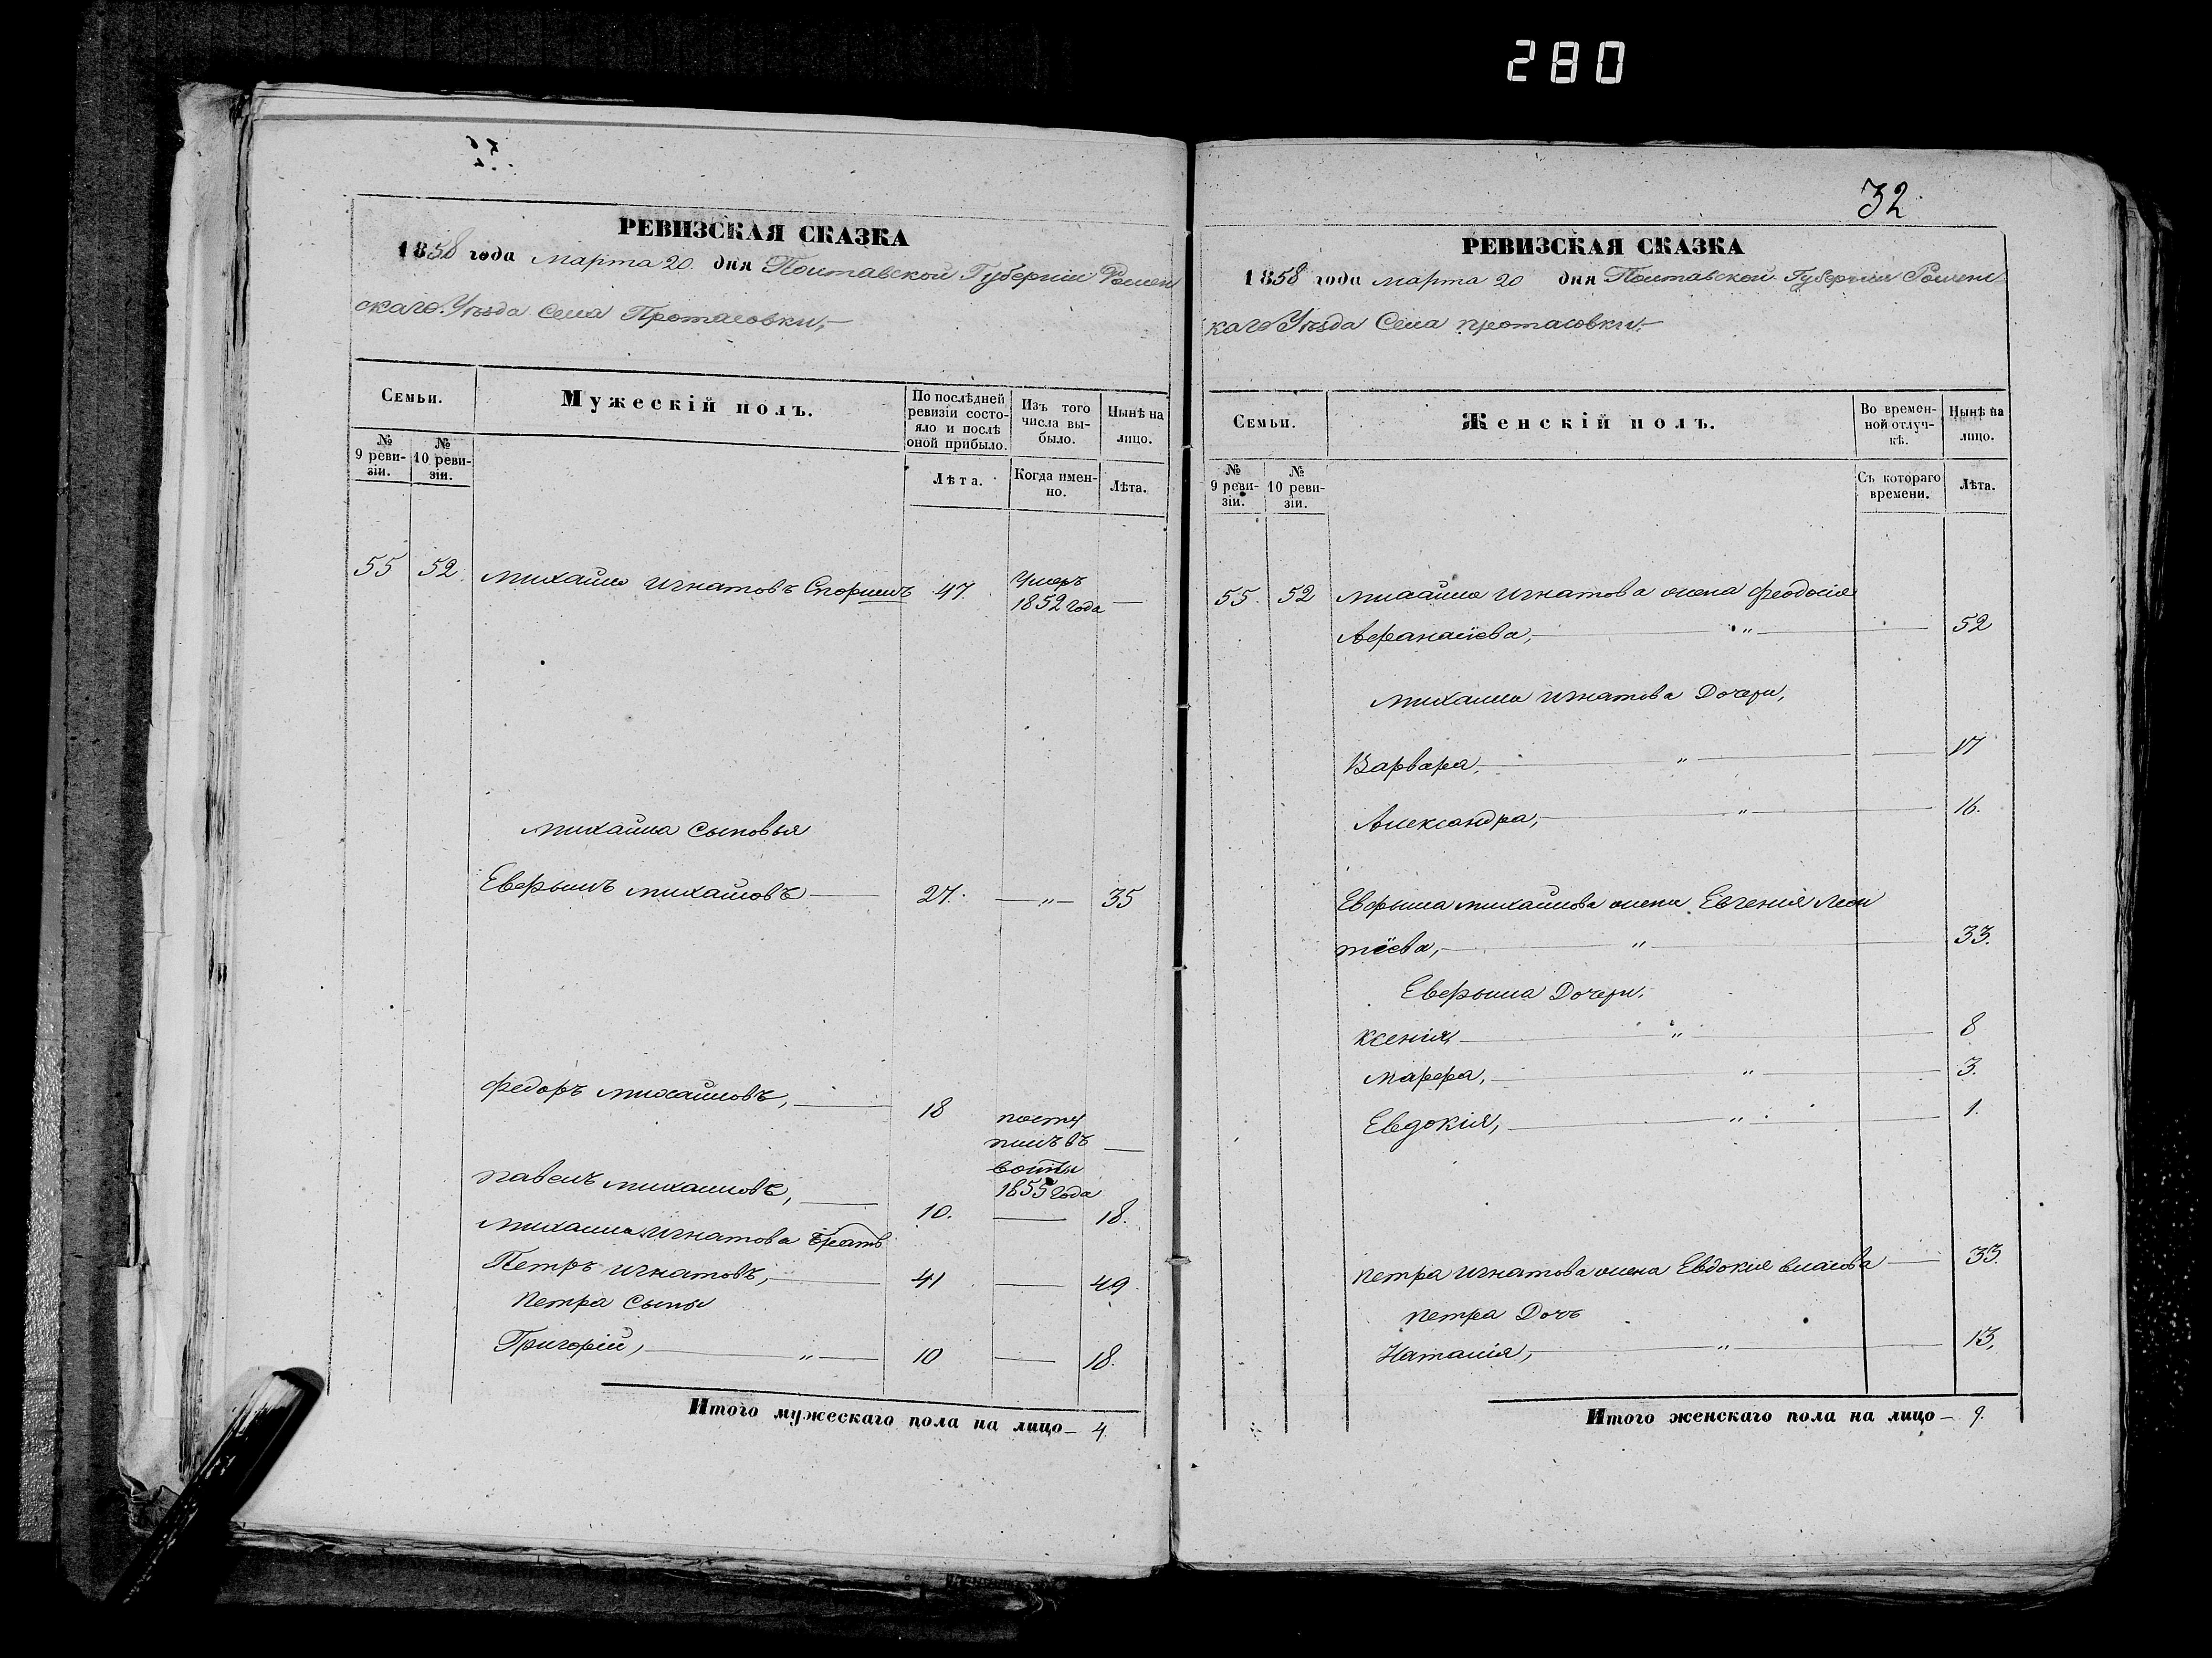 280
РЕВИЗСКАЯ СКАЗКА
1858 года марта 20. дня Полтавской Губернии Ромен
скаго Уѣзда Села Протасовки,
Семьи.
Мужескій полъ.
По послѣдней ревизіи состояло и послѣ оной прибыло.
Изъ того числа выбыло.
Нынѣ на лицо.
№ 9 ревизіи.
№ 10 ревизіи.
Лѣта.
Когда именно.
Лѣта.
55 52. Михайло Игнатовъ Споришъ 47. Умеръ
1852 года —
Михайла Сыновья
Еверьянъ Михайловъ — 27. — „ — 35
Федоръ Михайловъ, — 18 посту
пилъ въ —
1855 года
Павелъ Михайловъ, — 10. — 18.
Михайла Игнатова Братъ
Петръ Игнатовъ, — 41 — 49.
Петра Сыны
Григорій, — „ — 10 — 18.
Итого мужескаго пола на лицо — 4.
32
РЕВИЗСКАЯ СКАЗКА
1858 года марта 20 дня Полтавской Губернии Роменс
каго Уѣзда Села Протасовки
Семьи.
Женскій полъ.
Во временной отлучкѣ.
Нынѣ на лицо.
№ 9 ревизіи.
№ 10 ревизіи.
Съ котораго времени.
Лѣта.
55. 52 Михайла Игнатова жена Феодосія
Афанасіева, — „ — 52
Михайла Игнатова Дочери,
Варвара, — „ — 17
Александра, — „ — 16.
Михайлова жена Евгенія Леон
тіева, — „ — 33.
Дочери.
Ксенія, — „ — 8
Марфа, — „ — 3.
Евдокія, — „ — 1.
Петра Игнатова жена Евдокія Власова — 33.
Петра Дочь
Наталія, — „ — 13,
Итого женскаго пола на лицо — 9.